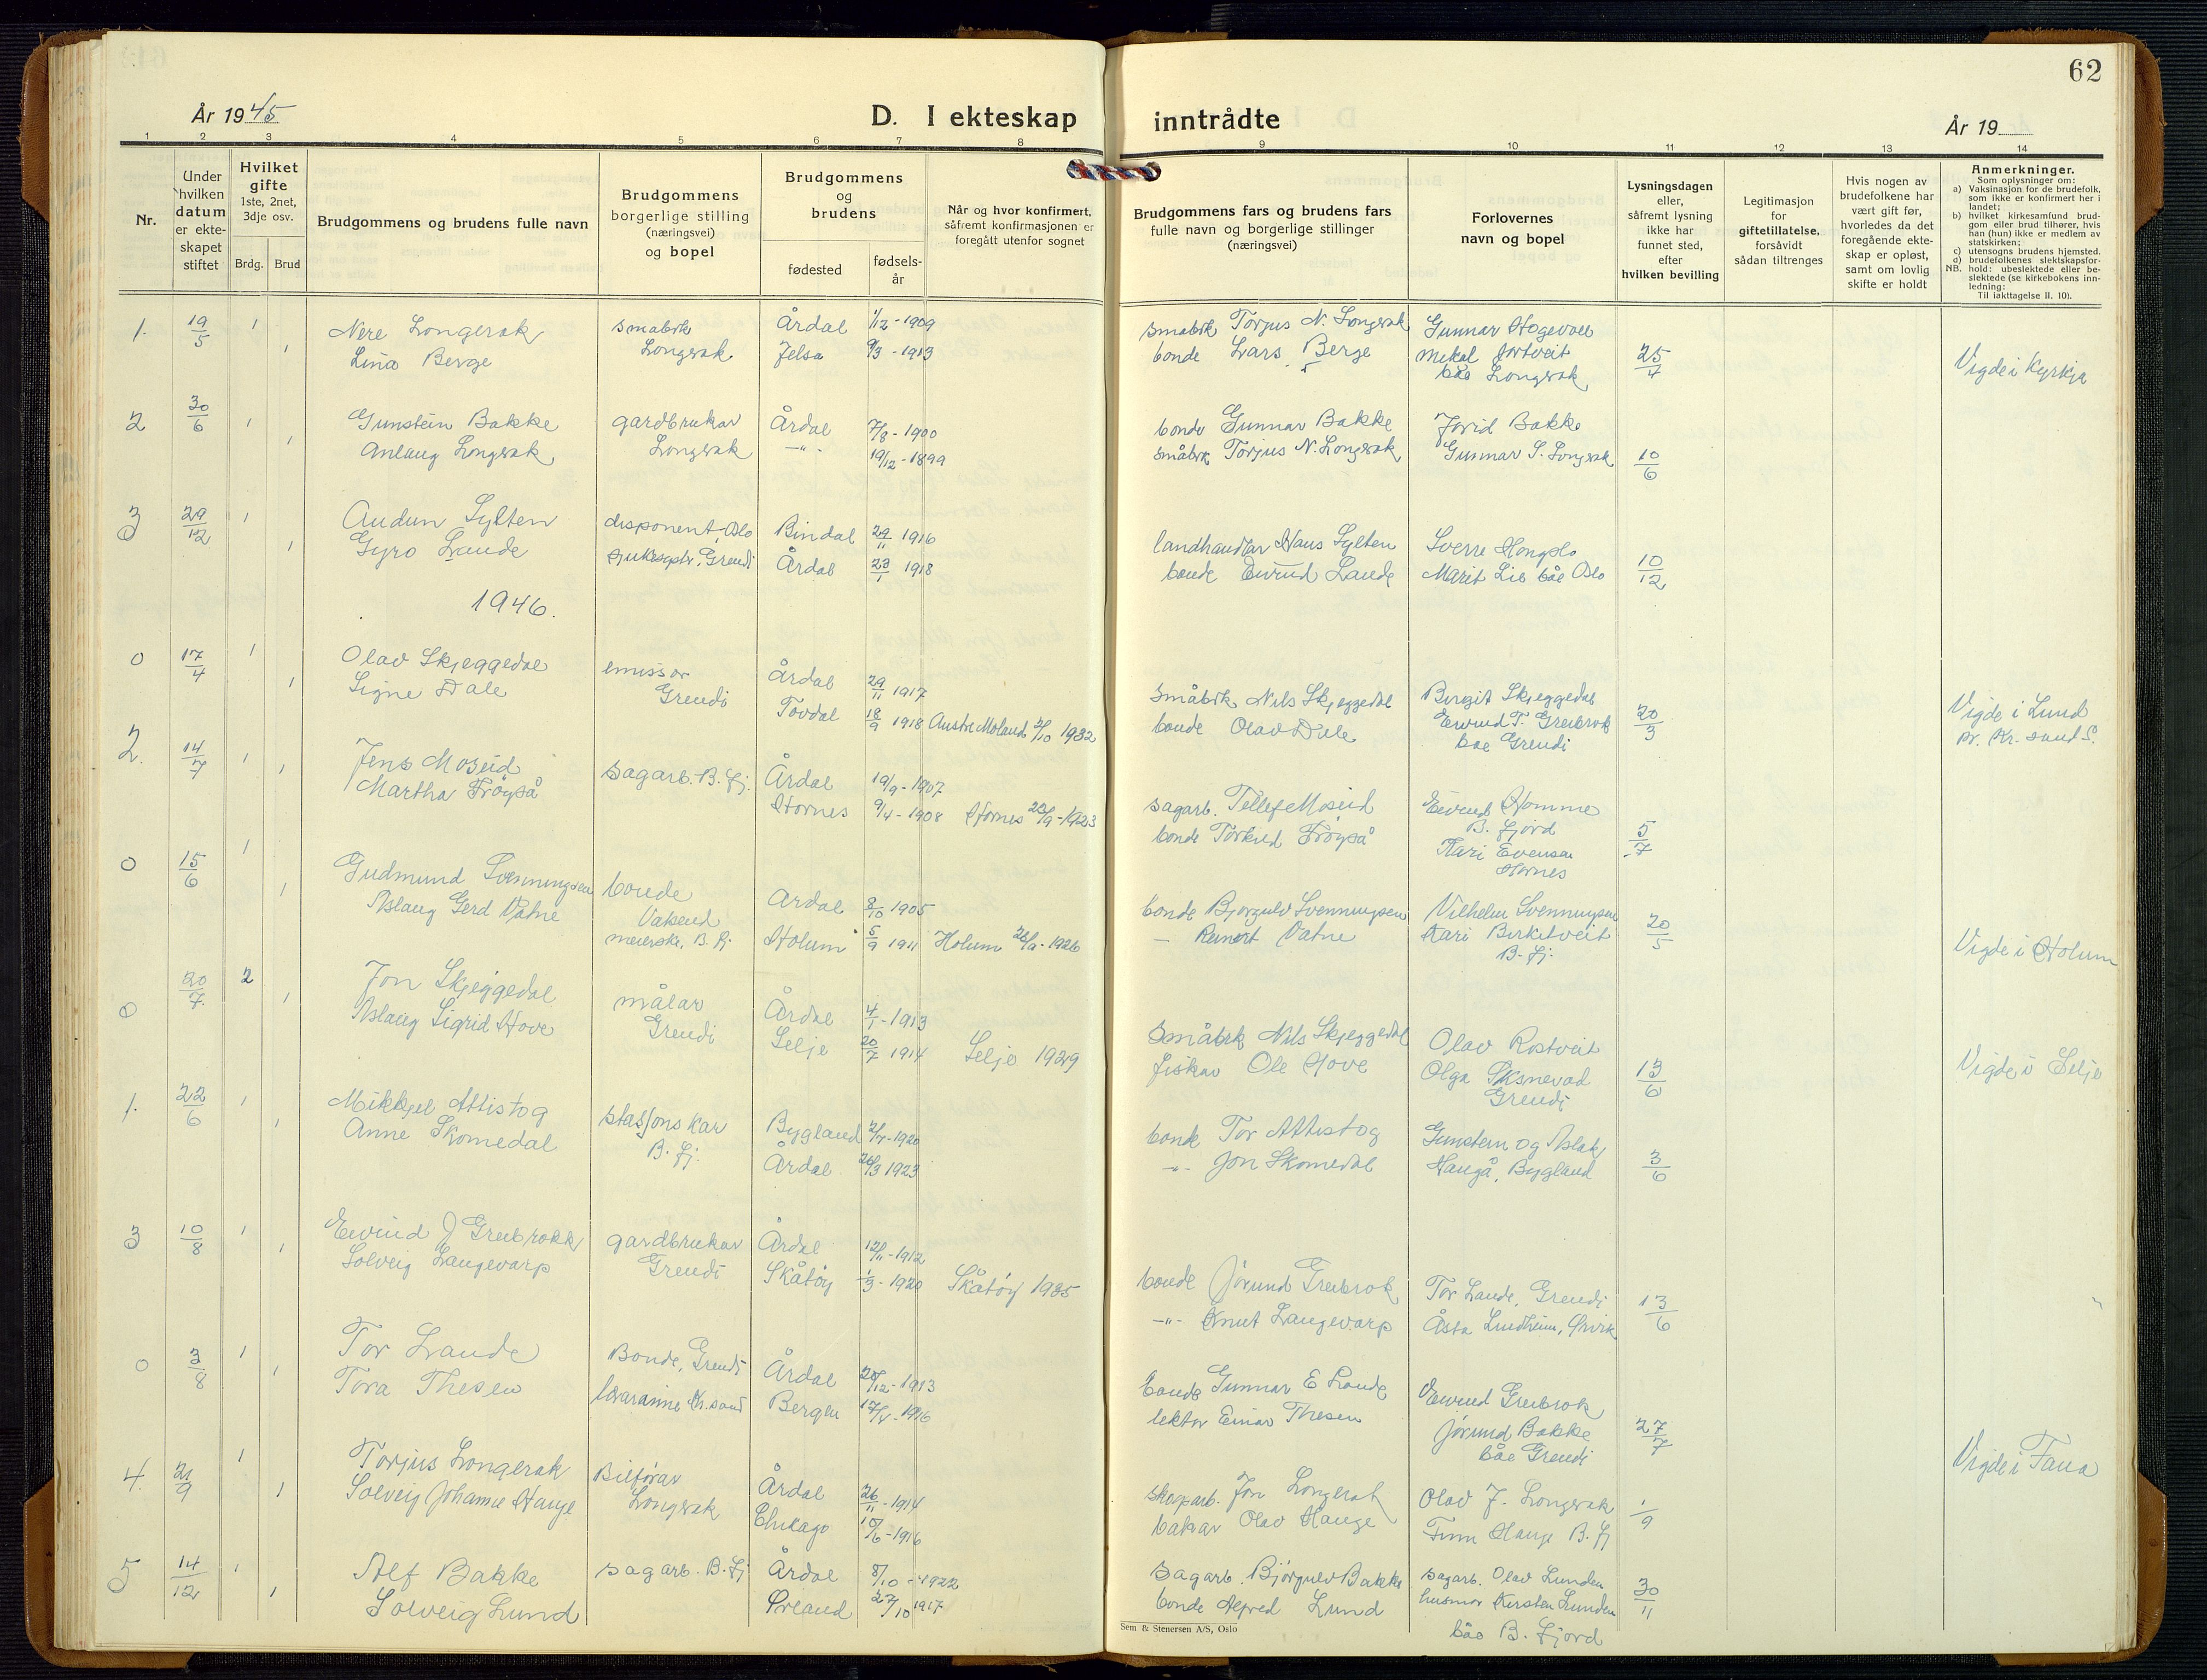 62
År 1945
D. I ekteskap inntrådte
År 19
1 2 3 4 5 6 7 8 9 10 11 12 13 14
Nr.
Under hvilken datum er ekte-skapet stiftet
Hvilket gifte 1ste, 2net, 3dje osv.
Brdg. Brud
Brudgommens og brudens fulle navn
Brudgommens borgerlige stilling (næringsvei) og bopel
Brudgommens og brudens
fødested
fødsels-år
Når og hvor konfirmert, såfremt konfirmasjonen er foregått utenfor sognet
Brudgommens fars og brudens fars fulle navn og borgerlige stillinger (næringsvei)
Forlovernes navn og bopel
Lysningsdagen eller, såfremt lysning ikke har funnet sted, efter hvilken bevilling
Legitimasjon for giftetillatelse, forsåvidt sådan tiltrenges
Hvis nogen av brudefolkene har vært gift før, hvorledes da det foregående ekte-skap er opløst, samt om lovlig skifte er holdt
Anmerkninger.
Som oplysninger om:
a) Vaksinasjon for de brudefolk, som ikke er konfirmert her i landet;
b) hvilket kirkesamfund brud-gom eller brud tilhører, hvis han (hun) ikke er medlem av statskirken;
c) utensogns brudens hjemsted.
d) brudefolkenes slektskapsfor-
NB. hold: ubeslektede eller be-slektede (se kirkebokens inn-ledning:
Til iakttagelse II. 10).
1. 19/5 1 Nere Longerak småbrk Årdal 1/12-1909 småbrk Torjus N. Longerak Gunnar Hogevoll
1 Lina Berge Longerak Jelsa 9/3-1913 bonde Lars Berge Mikal Jortveit 25/4 Vigde i Kyrkja
båe Longerak
2 30/6 1 Gunstein Bakke gardbrukar Årdal 7/8-1900 bonde Gunnar Bakke Jorid Bakke
1 Anlaug Longerak Longerak -"- 19/12-1899 småbrk Torjus N. Longerak Gunnar S. Longerak 10/6
3 29/12 1 Audun Sylten disponent, Oslo Bindal 29/11 1916 landhandlar Hans Sylten Sverre Hongslo
1 Gyro Lande sjukepl. Grendi Årdal 23/1 1918 bonde Eivind Lande Marit Lie båe Oslo 10/12
1946.
0 17/4 1 Olav Skjeggedal emissær Årdal 29/11 1917 småbrk Nils Skjeggedal Birgit Skjeggedal
1 Signe Dale Grendi Tovdal 18/9 1918 Austre Moland 2/10 1932 bonde Olav Dale Eivind T. Greibrok 20/3 Vigde i Lund
båe Grendi pr. Kr. sand S.
2. 14/7 1 Jens Moseid sagarb. B. Fj. Årdal 19/9-1907 sagarb. Tellef Moseid Eivind Homme
1 Martha Frøyså Hornes 9/4-1908 Hornes 23/9-1923 bonde Torkel Frøyså B. Fjord 5/7
Kari Evensen
Hornes
0 15/6 1 Gudmund Svenningsen bonde Årdal 8/10-1905 bonde Bjørgulv Svenningsen Vilhelm Svenningsen
1 Aslaug Gerd Vatne Vatsend Holum 5/9 1911 Holum 26/9-1926 - Reinert Vatne Kari Birketveit 20/5 Vigde i Holum
meierske, B. Fj. B. Fj.
0 20/7 2 Jon Skjeggedal målar Årdal 4/1-1913 Småbrk Nils Skjeggedal Olav Rostveit
1 Aslaug Sigrid Hove Grendi Selje 20/7 1914 Selje 1929 fiskar Ole Hove Olga Oksnevad 13/6 Vigde i Selje
Grendi
1. 22/6 1 Mikkjel Attistog stasjonskar Bygland 2/7-1920 bonde Tor Attistog Gunstein og Aslak
1 Anne Skomedal B. Fj. Årdal 26/3 1923 -"- Jon Skomedal Haugå, Bygland 3/6
3 10/8 1 Eivind J Greibrokk gardbrukar Årdal 12/11-1912 bonde Jørund Greibrok Tor Lande, Grendi
1 Solveig Langevarp Grendi Skåtøy 1/3-1920 Skåtøy 1935 -"- Knut Langevarp Åsta Lindheim, 13/6
0 3/8 1 Tor Lande Bonde, Grendi Årdal 25/12-1913 bonde Gunnar E Lande Eivind Greibrok
1 Tora Thesen lærarinne Kr.sand Bergen 17/5-1916 lektor Einar Thesen Jørund Bakke 27/7
båe Grendi Vigde i Fana
4. 21/9 1 Torjus Longerak Bilførar Årdal 26/11-1914 skogarb. Jon Longerak Olav J. Longerak 1/9
1 Solveig Johanne Hauge Longerak Chikago 10/6-1916 bakar Olav Hauge Finn Hauge B. Fj
5 14/12 1 Alf Bakke sagarb. B. Fj Årdal 8/10-1922 Sagarb. Bjørgulv Bakke sagarb. Olav Lunden 30/11
1 Solveig Lund Ørland 27/10 1917 bonde Alfred Lund husmor Kirsten Lunden
båe B. Fjord
Sem & Stenersen A/S, Oslo